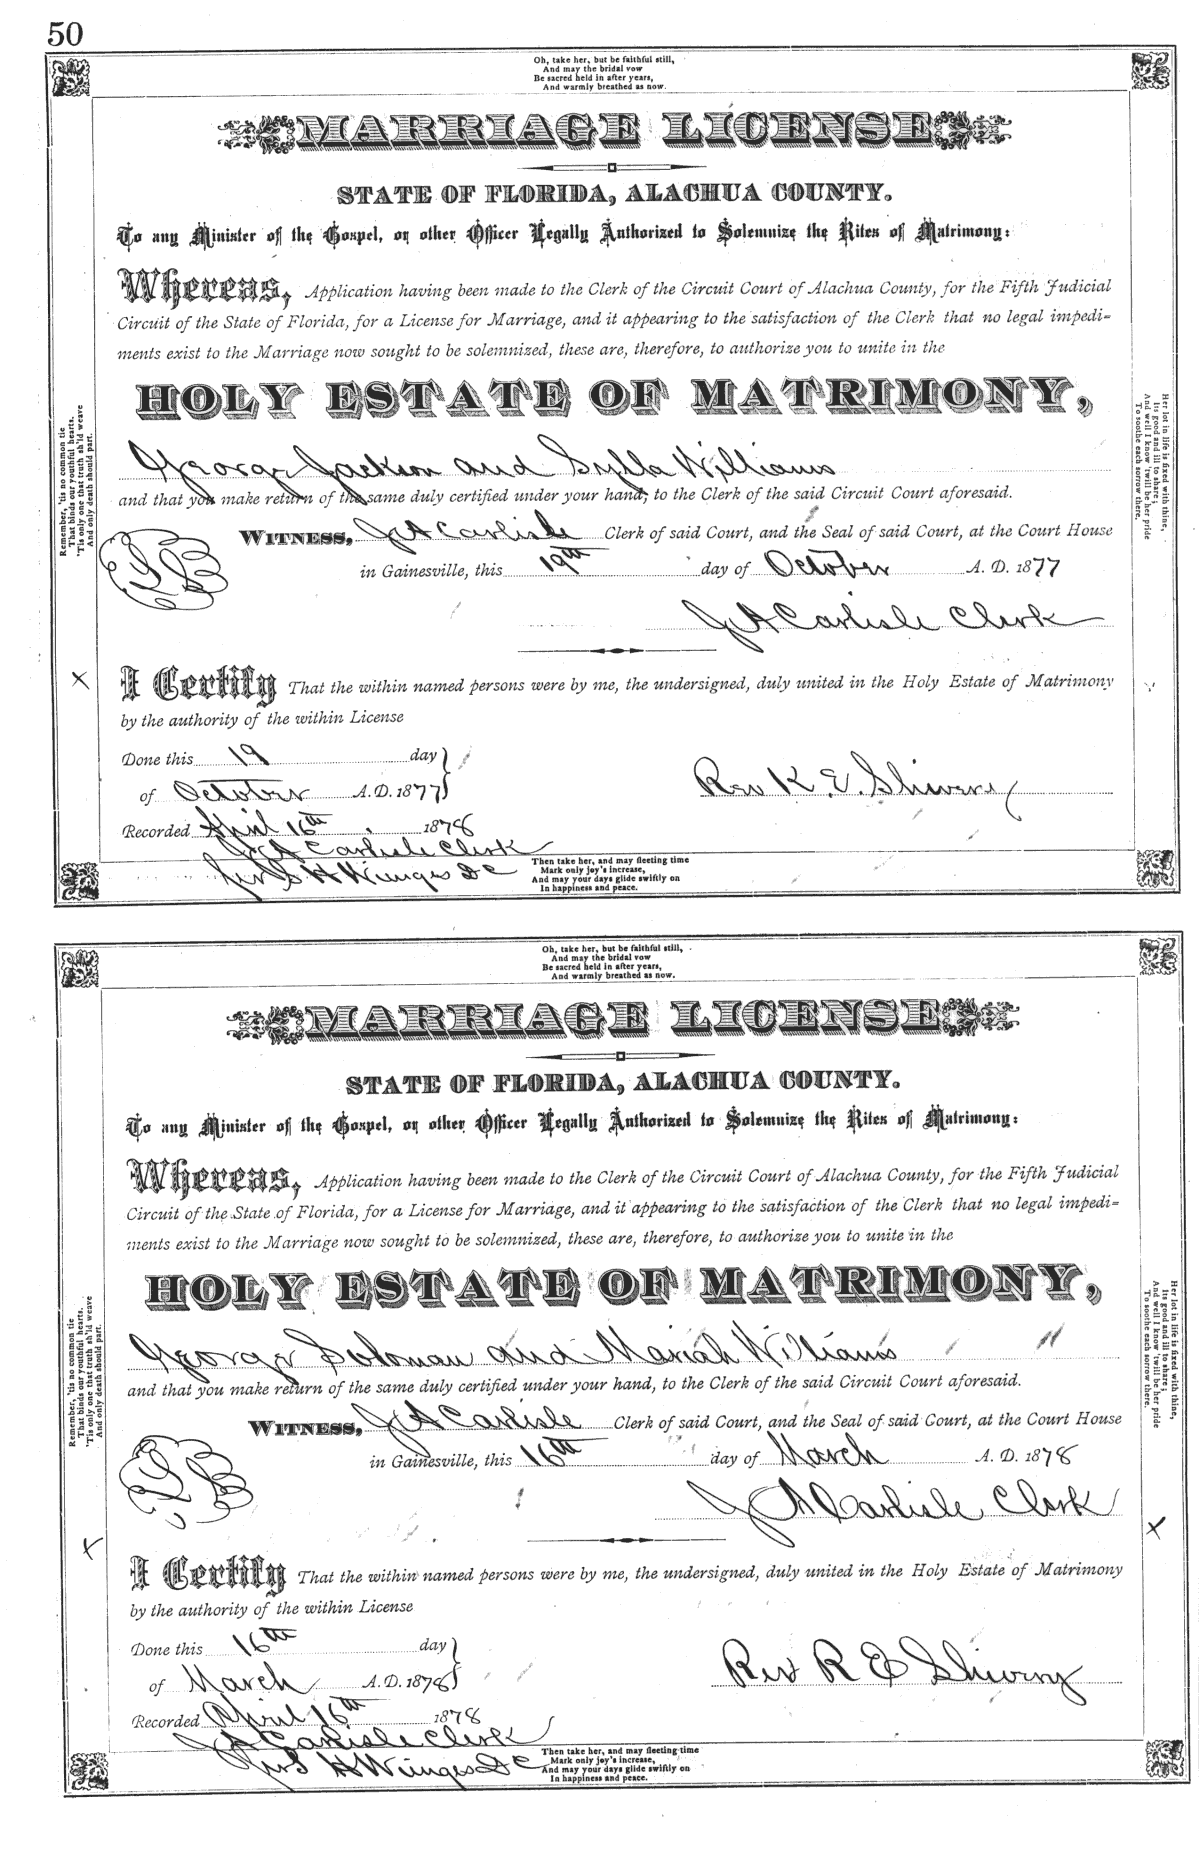 50
Oh, take her, but be faithful still,
And may the bridal vow
Be sacred held in after years,
And warmly breathed as now.
MARRIAGE LICENSE
STATE OF FLORIDA, ALACHUA COUNTY.
To any Minister of the Gospel, or other Officer Legally Authorized to Solemnize the Rites of Matrimony:
Whereas, Application having been made to the Clerk of the Circuit Court of Alachua County, for the Fifth Judicial
Circuit of the State of Florida, for a License for Marriage, and it appearing to the satisfaction of the Clerk that no legal impedi=
ments exist to the Marriage now sought to be solemnized, these are, therefore, to authorize you to unite in the
HOLY ESTATE OF MATRIMONY,
George Jackson and Sylla Williams
and that you make return of the same duly certified under your hand, to the Clerk of the said Circuit Court aforesaid.
WITNESS, J A Carlisle Clerk of said Court, and the Seal of said Court, at the Court House
in Gainesville, this 19th day of October A. D. 1877
J A Carlisle Clerk
X
I Certify That the within named persons were by me, the undersigned, duly united in the Holy Estate of Matrimony
by the authority of the within License
Done this 19 day
of October A. D. 1877
Rev K. E. Shivery
Recorded April 16th 1878
J A Carlisle Clerk
H Wienges DC
Remember, 'tis no common tie
That binds our youthful hearts.
'Tis only one that truth sh'ld weave
And only death should part.
Her lot in life is fixed with thine,
Its good and ill to share;
And well I know 'twill be her pride
To soothe each sorrow there.
Then take her, and may fleeting time
Mark only joy's increase,
And may your days glide swiftly on
In happiness and peace.
Oh, take her, but be faithful still,
And may the bridal vow
Be sacred held in after years,
And warmly breathed as now.
MARRIAGE LICENSE
STATE OF FLORIDA, ALACHUA COUNTY.
To any Minister of the Gospel, or other Officer Legally Authorized to Solemnize the Rites of Matrimony:
Whereas, Application having been made to the Clerk of the Circuit Court of Alachua County, for the Fifth Judicial
Circuit of the State of Florida, for a License for Marriage, and it appearing to the satisfaction of the Clerk that no legal impedi=
ments exist to the Marriage now sought to be solemnized, these are, therefore, to authorize you to unite in the
HOLY ESTATE OF MATRIMONY,
George Soloman and Mariah Williams
and that you make return of the same duly certified under your hand, to the Clerk of the said Circuit Court aforesaid.
WITNESS, J A Carlisle Clerk of said Court, and the Seal of said Court, at the Court House
in Gainesville, this 16th day of March A. D. 1878
J A Carlisle Clerk
X
X
I Certify That the within named persons were by me, the undersigned, duly united in the Holy Estate of Matrimony
by the authority of the within License
Done this 16th day
of March A. D. 1878
Rev R E Shivery
Recorded April 16th 1878
J A Carlisle Clerk
H Wienges DC
Remember, 'tis no common tie
That binds our youthful hearts.
'Tis only one that truth sh'ld weave
And only death should part.
Her lot in life is fixed with thine,
Its good and ill to share;
And well I know 'twill be her pride
To soothe each sorrow there.
Then take her, and may fleeting time
Mark only joy's increase,
And may your days glide swiftly on
In happiness and peace.